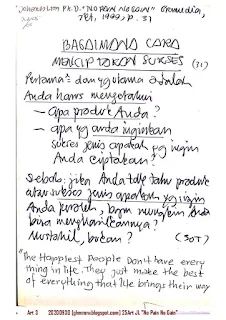 "Johanes Lim Ph.D. "No PAIN No GAIN" Gramedia,
Jkt, 1999, p. 31
BAGAIMANA CARA
MENCIPTAKAN SUKSES
(31)
Pertama2 dan yg utama adalah
Anda harus mengetahui
- Apa produk Anda?
- apa yg anda inginkan
sukses jenis apakah yg ingin
Anda ciptakan?
Sebab jika Anda tak tahu produk
atau sukses jenis apakah yg ingin
Anda peroleh, bgm mungkin Anda
bisa menghasilkannya?
Mustahil, bukan?
(SOT)
"The Happiest People Don't have every
thing in life. They just make the best
of everything that life brings their way
Art 3 20200930 [gkmnanu.blogspot.com] 25Art JL "No Pain No Gain"